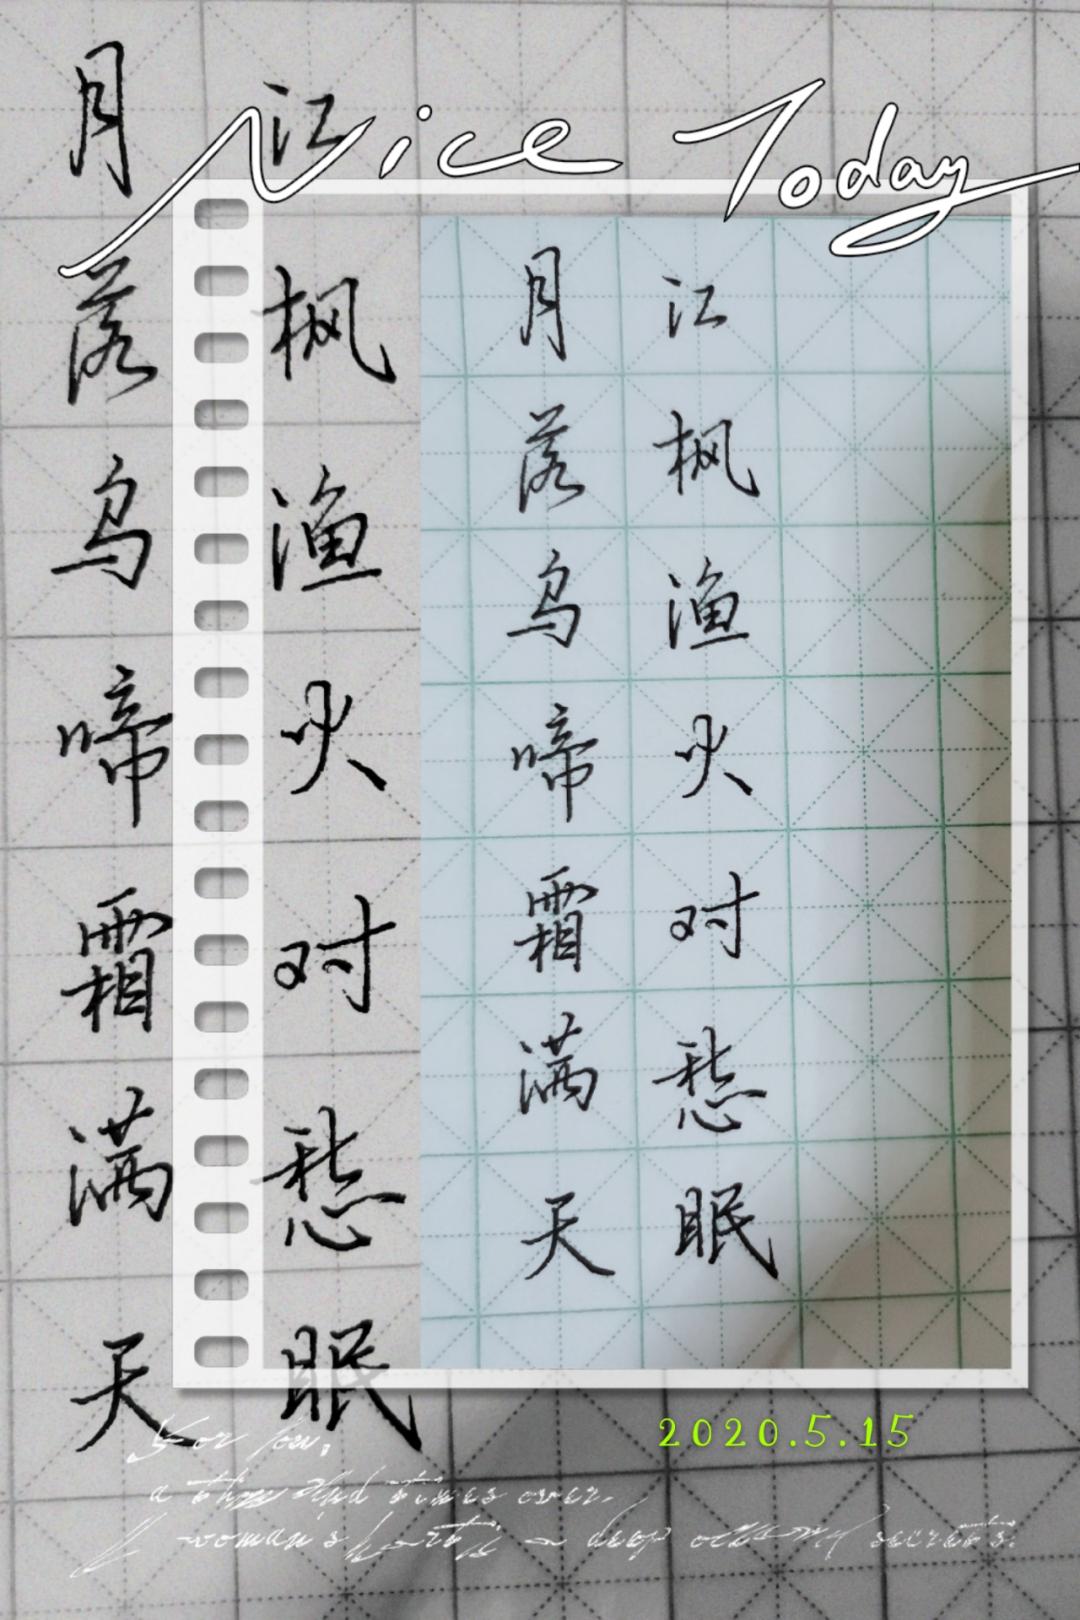 Nice Today
月落乌啼霜满天
江枫渔火对愁眠
月落乌啼霜满天
江枫渔火对愁眠
2020.5.15
For you,
a thousand times over.
A woman's heart is a deep ocean of secrets.